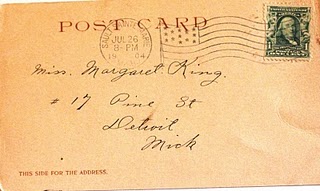 POST CARD
SAULT SAINTE MARIE
JUL 26
8-PM
1904
Miss. Margaret King.
# 17 Pine St
Detroit
Mich
THIS SIDE FOR THE ADDRESS.